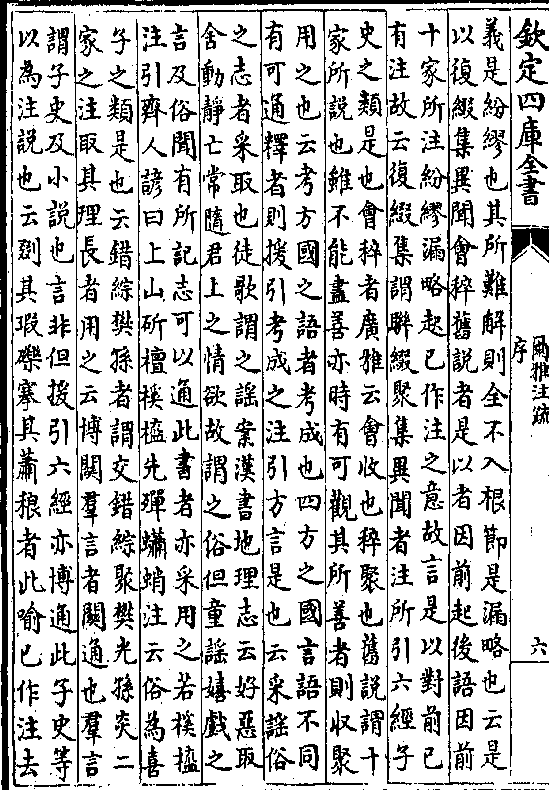 欽定四庫全書
爾雅注疏
序
六
義是紛繆也其所難解則全不入根節是漏略也云是
以復綴集異聞會稡舊說者是以者因前起後語因前
十家所注紛繆漏略起已作注之意故言是以對前已
有注故云復綴集謂聮綴聚集異聞者注所引六經子
史之類是也會稡者廣雅云會收也稡聚也舊說謂十
家所說也雖不能盡善亦時有可觀其所善者則収聚
用之也云考方國之語者考成也四方之國言語不同
有可通釋者則援引考成之注引方言是也云采謡俗
之志者采取也徒歌謂之謡案漢書地理志云好惡取
舍動靜亡常隨君上之情欲故謂之俗但童謡嬉戲之
言及俗聞有所記志可以通此書者亦采用之若檕橀
注引齊人諺曰上山斫檀檕橀先殫蟰蛸注云俗為喜
子之類是也云錯綜樊孫者謂交錯綜聚樊光孫炎二
家之注取其理長者用之云博關羣言者關通也羣言
謂子史及小說也言非但援引六經亦博通此子史等
以為注說也云剟其瑕礫搴其蕭稂者此喻已作注去